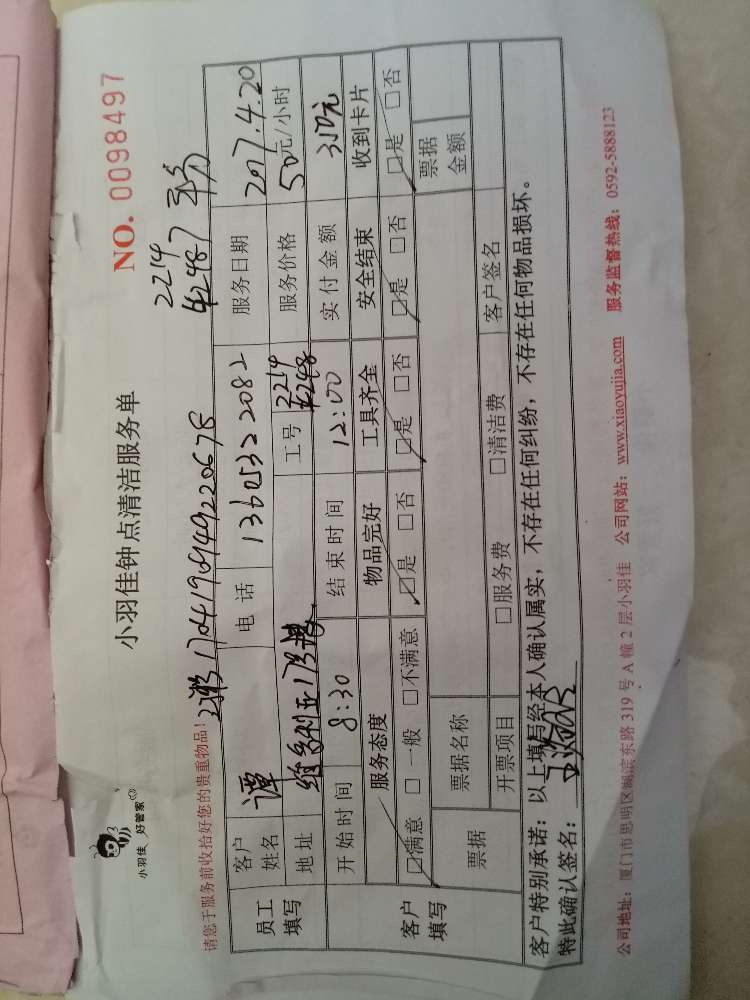 小羽佳 好管家
小羽佳钟点清洁服务单
NO. 0098497
请您于服务前收拾好您的贵重物品!
17041909149220678
2214
42487
员工填写
客户姓名 谭 电话 13605322082 服务日期 2017.4.20
地址 维多利亚 工号 2214 4248 服务价格 50元/小时
开始时间 8:30 结束时间 12:00 实付金额 350元
客户填写
服务态度 物品完好 工具齐全 安全结束 收到卡片
☑满意 □一般 □不满意 ☑是 □否 ☑是 □否 ☑是 □否 ☑是 □否
票据 票据名称 票据金额
开票项目 □服务费 □清洁费 客户签名
客户特别承诺：以上填写经本人确认属实，不存在任何纠纷，不存在任何物品损坏。
特此确认签名：
公司地址：厦门市思明区湖滨东路 319 号 A 幢 2 层小羽佳 公司网站：www.xiaoyujia.com 服务监督热线：0592-5888123